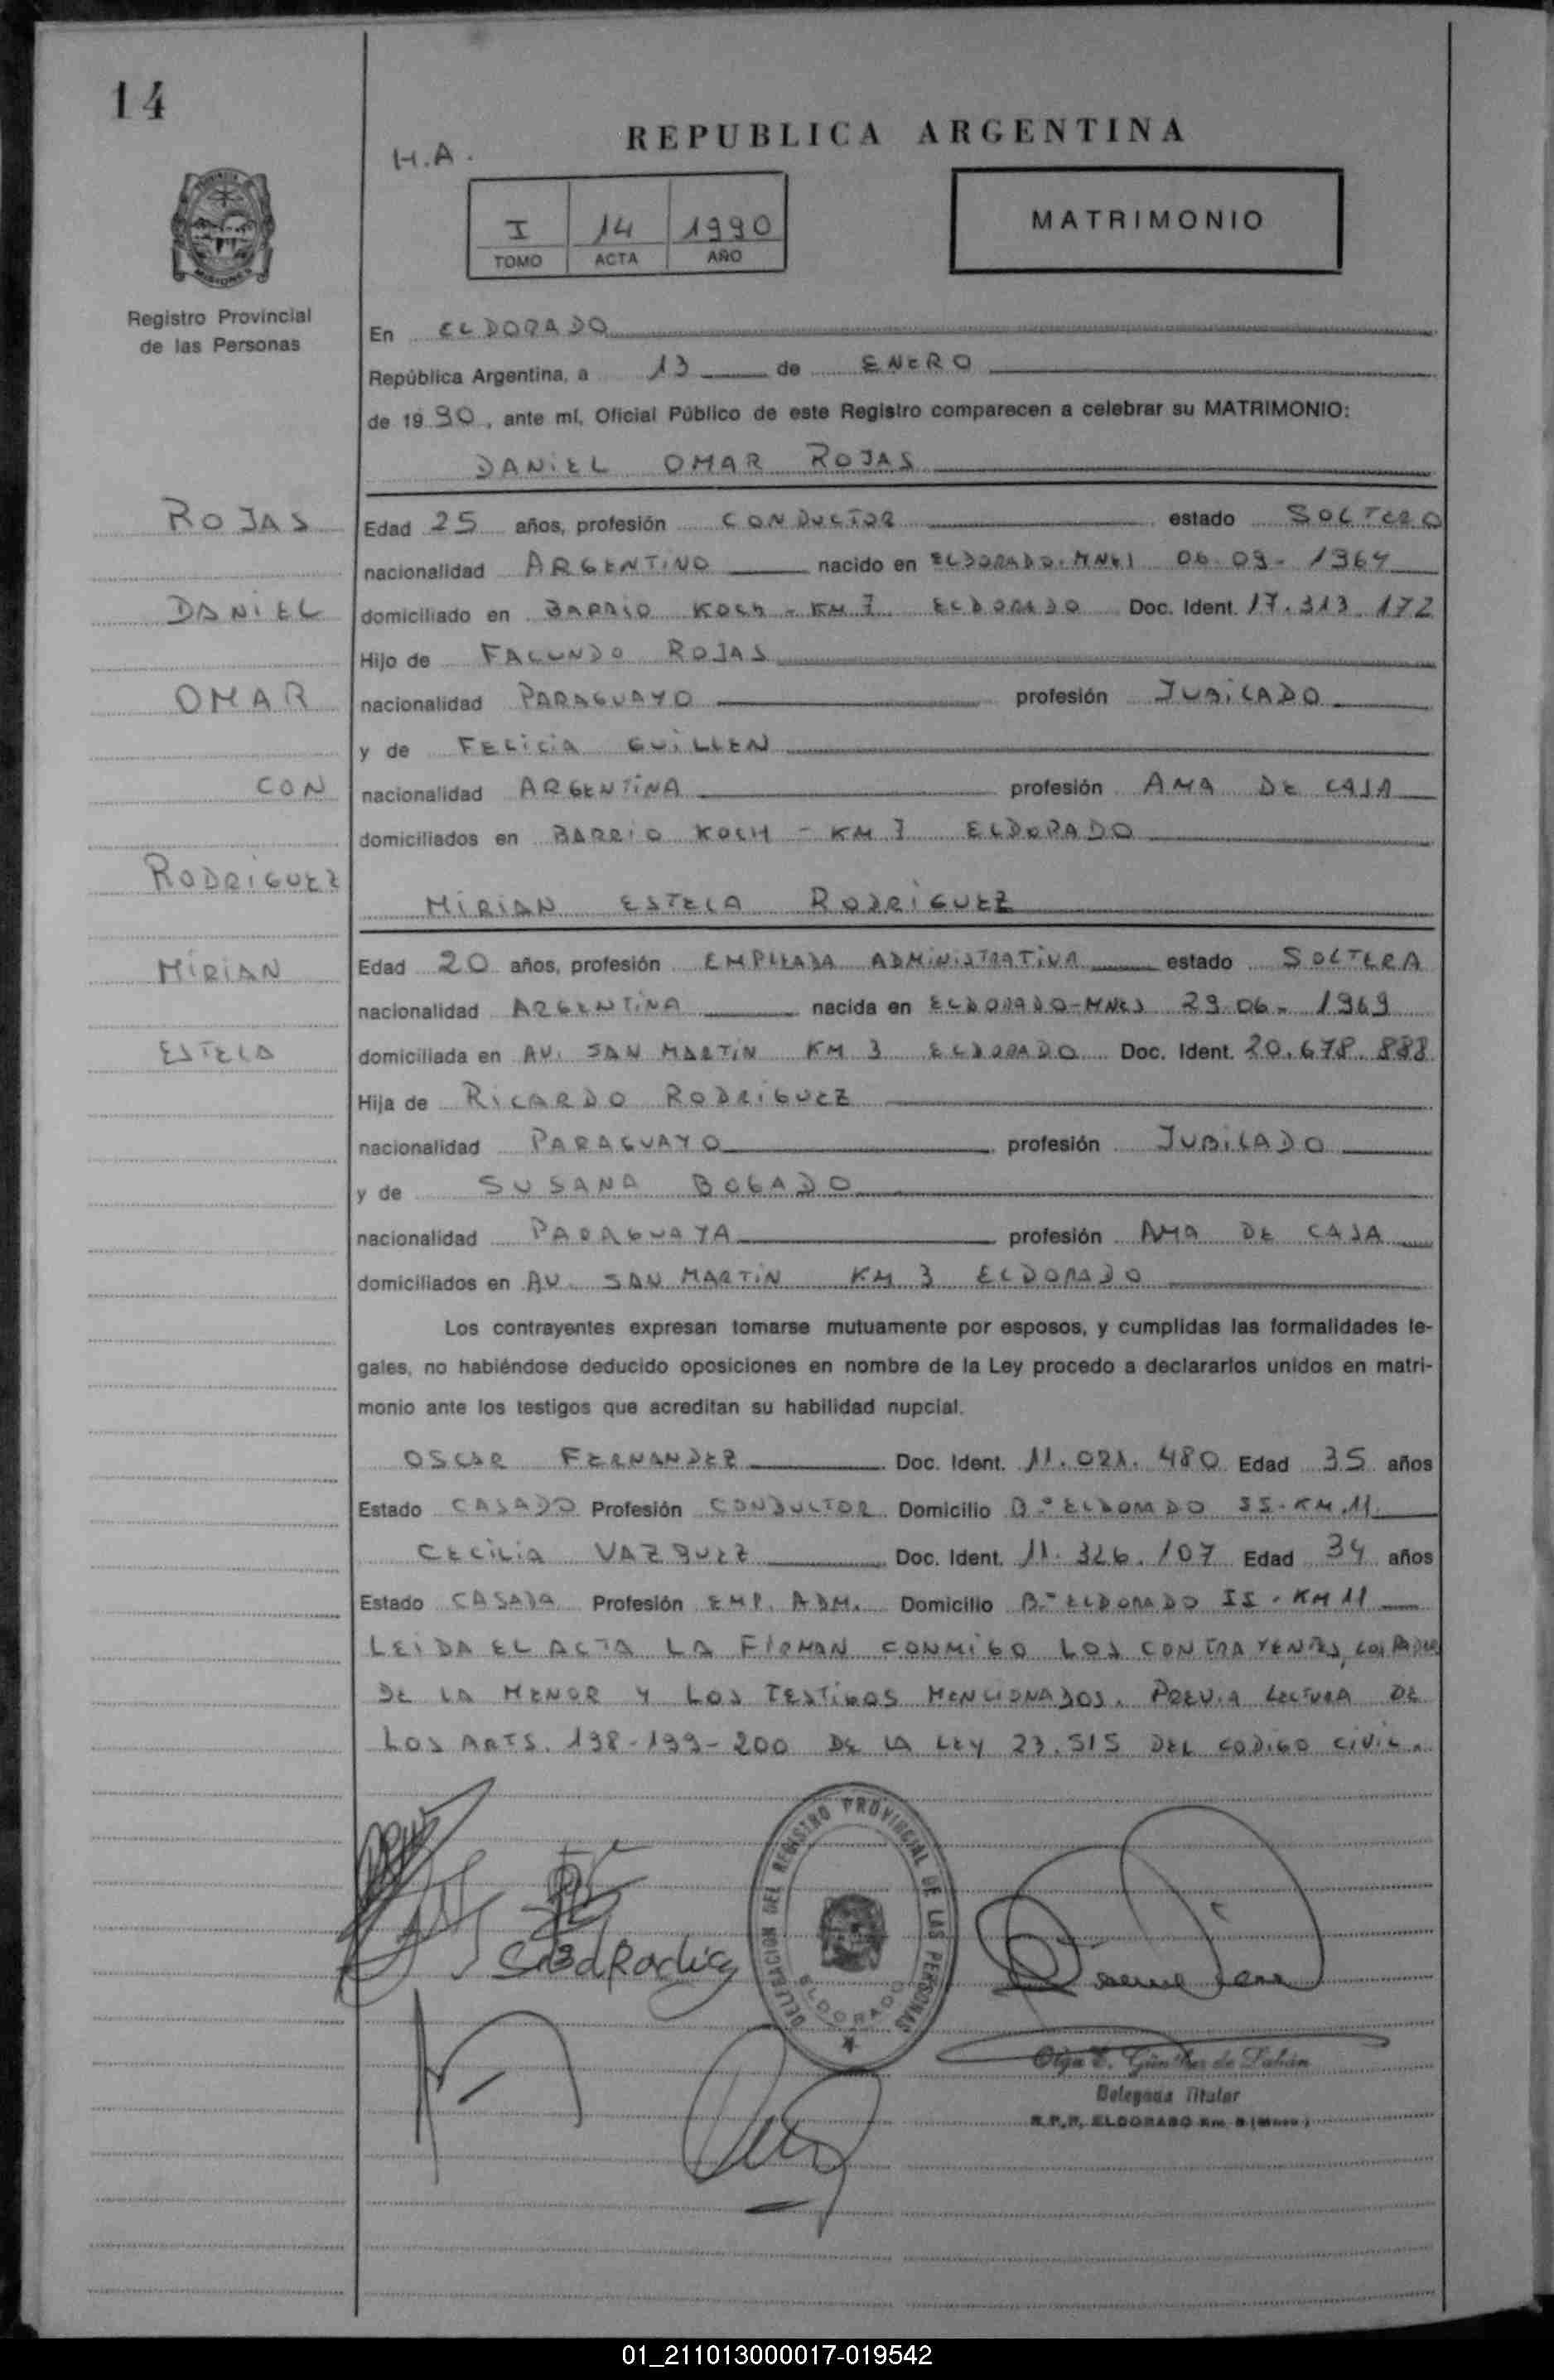 14
REPUBLICA ARGENTINA
H.A.
I 14 1990
TOMO ACTA AÑO
MATRIMONIO
PROVINCIA
MISIONES
Registro Provincial
de las Personas
En ELDORADO
República Argentina, a 13 de ENERO
de 1990, ante mí, Oficial Público de este Registro comparecen a celebrar su MATRIMONIO:
DANIEL OMAR ROJAS
ROJAS
DANIEL
OMAR
CON
RODRIGUEZ
MIRIAN
ESTELA
Edad 25 años, profesión CONDUCTOR estado SOLTERO
nacionalidad ARGENTINO nacido en ELDORADO-MNES 06-09-1964
domiciliado en BARRIO KOCH - KM 7 ELDORADO Doc. Ident. 17.313.172
Hijo de FACUNDO ROJAS
nacionalidad PARAGUAYO profesión JUBILADO
y de FELICIA GUILLEN
nacionalidad ARGENTINA profesión AMA DE CASA
domiciliados en BARRIO KOCH - KM 7 ELDORADO
MIRIAN ESTELA RODRIGUEZ
Edad 20 años, profesión EMPLEADA ADMINISTRATIVA estado SOLTERA
nacionalidad ARGENTINA nacida en ELDORADO-MNES 29-06-1969
domiciliada en AV. SAN MARTIN KM 3 ELDORADO Doc. Ident. 20.678.888
Hija de RICARDO RODRIGUEZ
nacionalidad PARAGUAYO profesión JUBILADO
y de SUSANA BOGADO
nacionalidad PARAGUAYA profesión AMA DE CASA
domiciliados en AV. SAN MARTIN KM 3 ELDORADO
Los contrayentes expresan tomarse mutuamente por esposos, y cumplidas las formalidades le-
gales, no habiéndose deducido oposiciones en nombre de la Ley procedo a declararlos unidos en matri-
monio ante los testigos que acreditan su habilidad nupcial.
OSCAR FERNANDEZ Doc. Ident. 11.021.480 Edad 35 años
Estado CASADO Profesión CONDUCTOR Domicilio B° ELDORADO II-KM.11
CECILIA VAZQUEZ Doc. Ident. 11.326.107 Edad 34 años
Estado CASADA Profesión EMP. ADM. Domicilio B° ELDORADO II-KM 11
LEIDA EL ACTA LA FIRMAN CONMIGO LOS CONTRAYENTES, LOS PADRES
DE LA MENOR Y LOS TESTIGOS MENCIONADOS. PREVIA LECTURA DE
LOS ARTS. 198-199-200 DE LA LEY 23.515 DEL CODIGO CIVIL.
DELEGACION DEL REGISTRO PROVINCIAL DE LAS PERSONAS
ELDORADO
Delegada Titular
R.P.P. ELDORADO
01_211013000017-019542